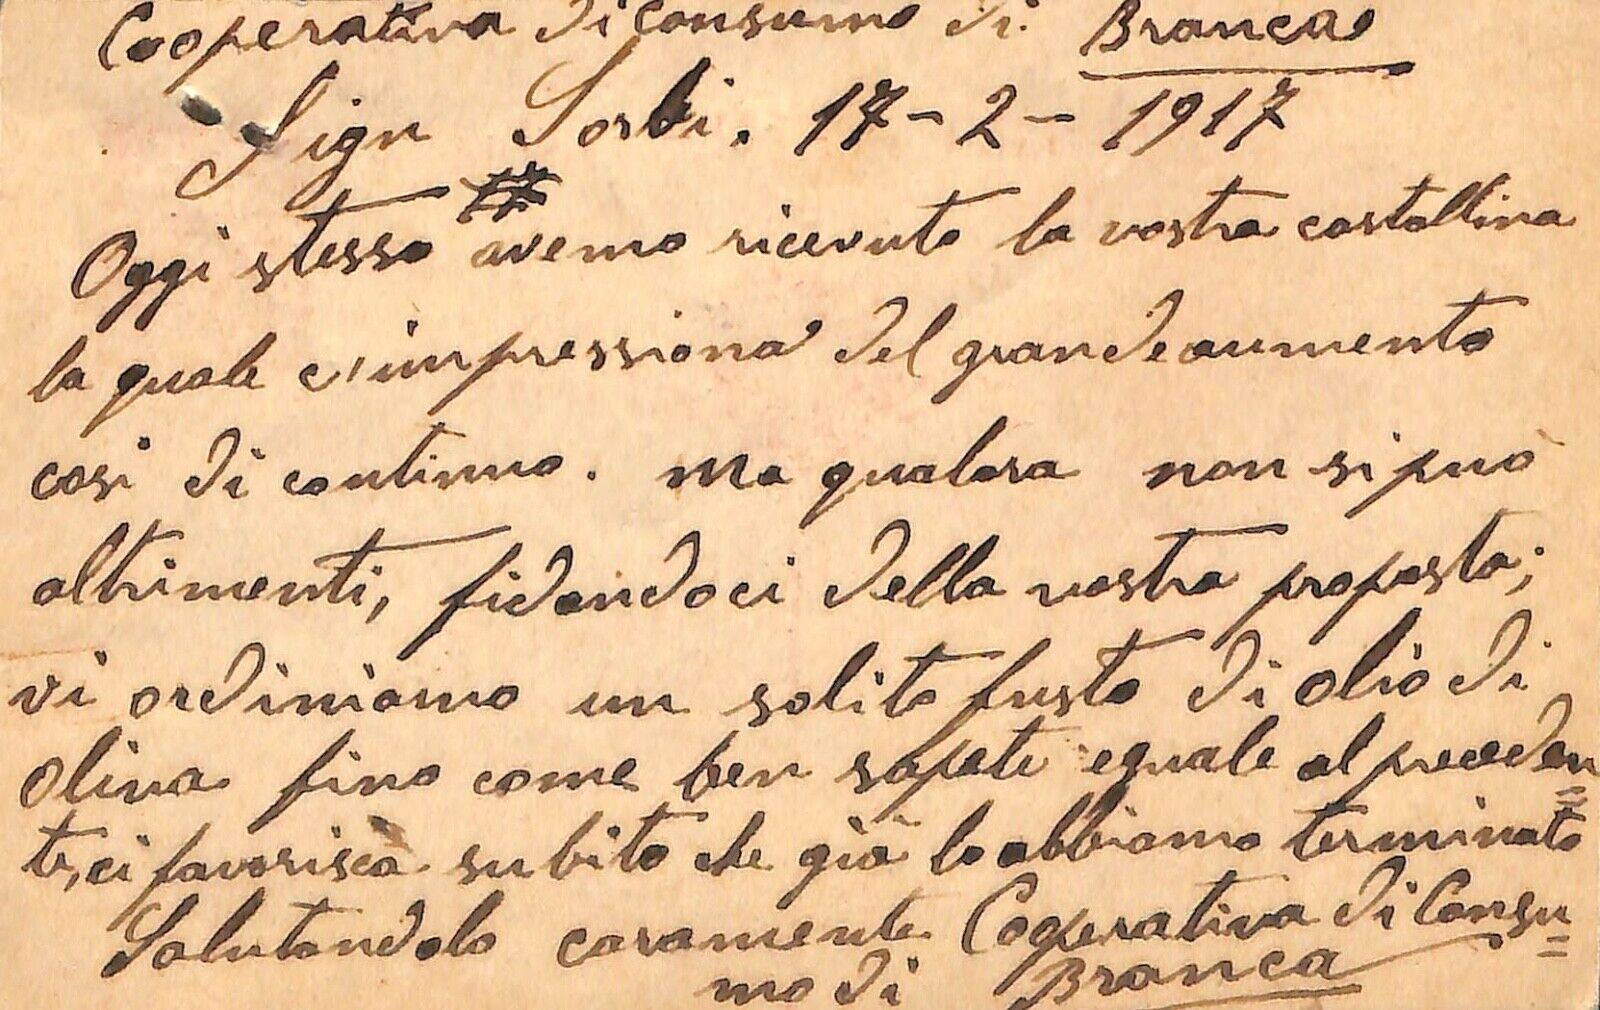 Cooperativa di Consumo di: Branca
Sigr Sorbi. 17-2-1917
Oggi stesso avemo ricevuto la vostra cartollina
la quale c'impressiona del grande aumento
così di continuo. Ma qualora non si può
altrimenti, fidandoci della vostra proposta;
vi ordiniamo un solito fusto di olio di
oliva fino come ben sapete eguale al preceden=
te, ci favorisca subito che già lo abbiamo terminato
Salutandolo caramente Cooperativa di Consu=
mo di Branca